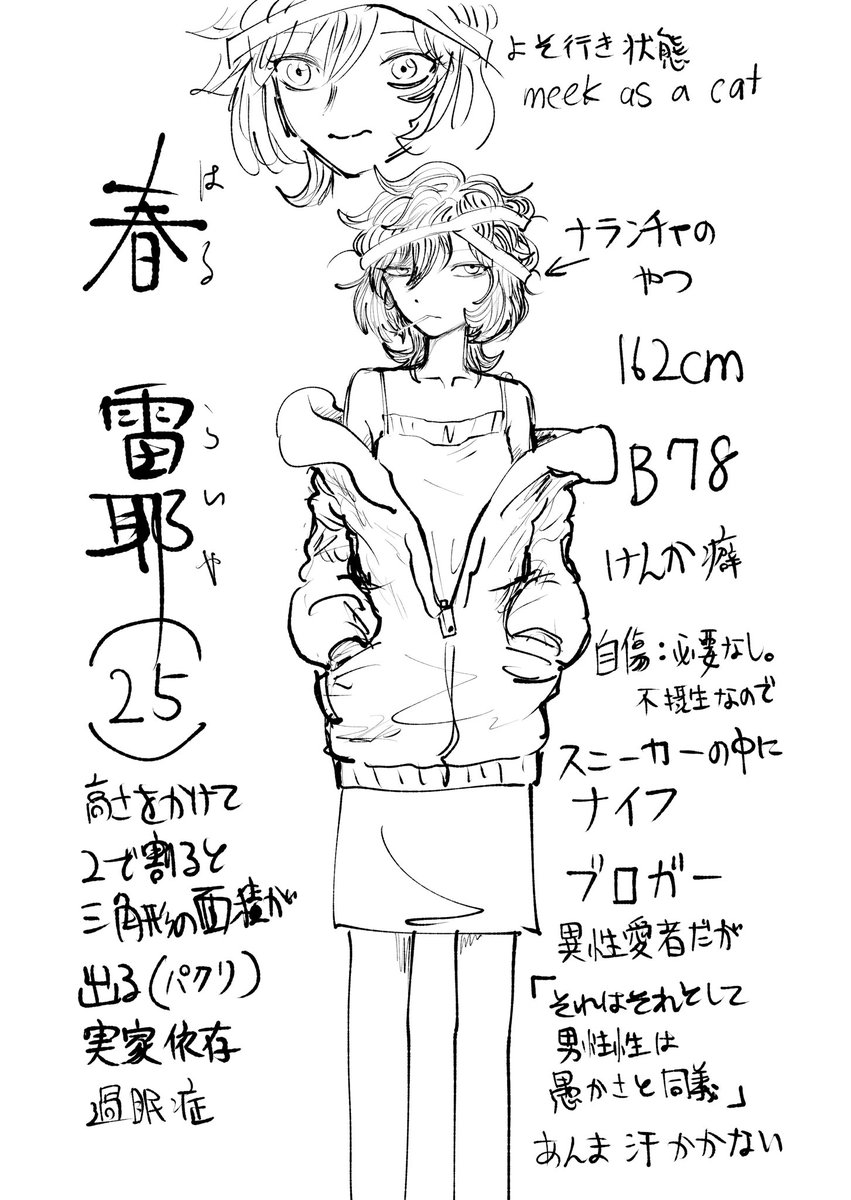 よそ行き状態
meek as a cat
春
はる
雷耶
らいや
(25)
高さをかけて
2で割ると
三角形の面積が
出る(パクリ)
実家依存
過眠症
ナランチャの
やつ
162cm
B78
けんか癖
自傷:必要なし。
不摂生なので
スニーカーの中に
ナイフ
ブロガー
異性愛者だが
「それはそれとして
男性性は
愚かさと同義」
あんま汗かかない